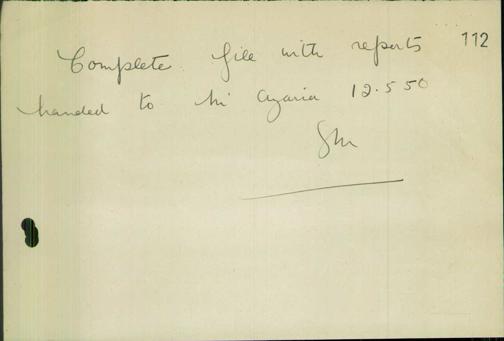 112
Complete file with reports
handed to Mr Azaria 12.5 50